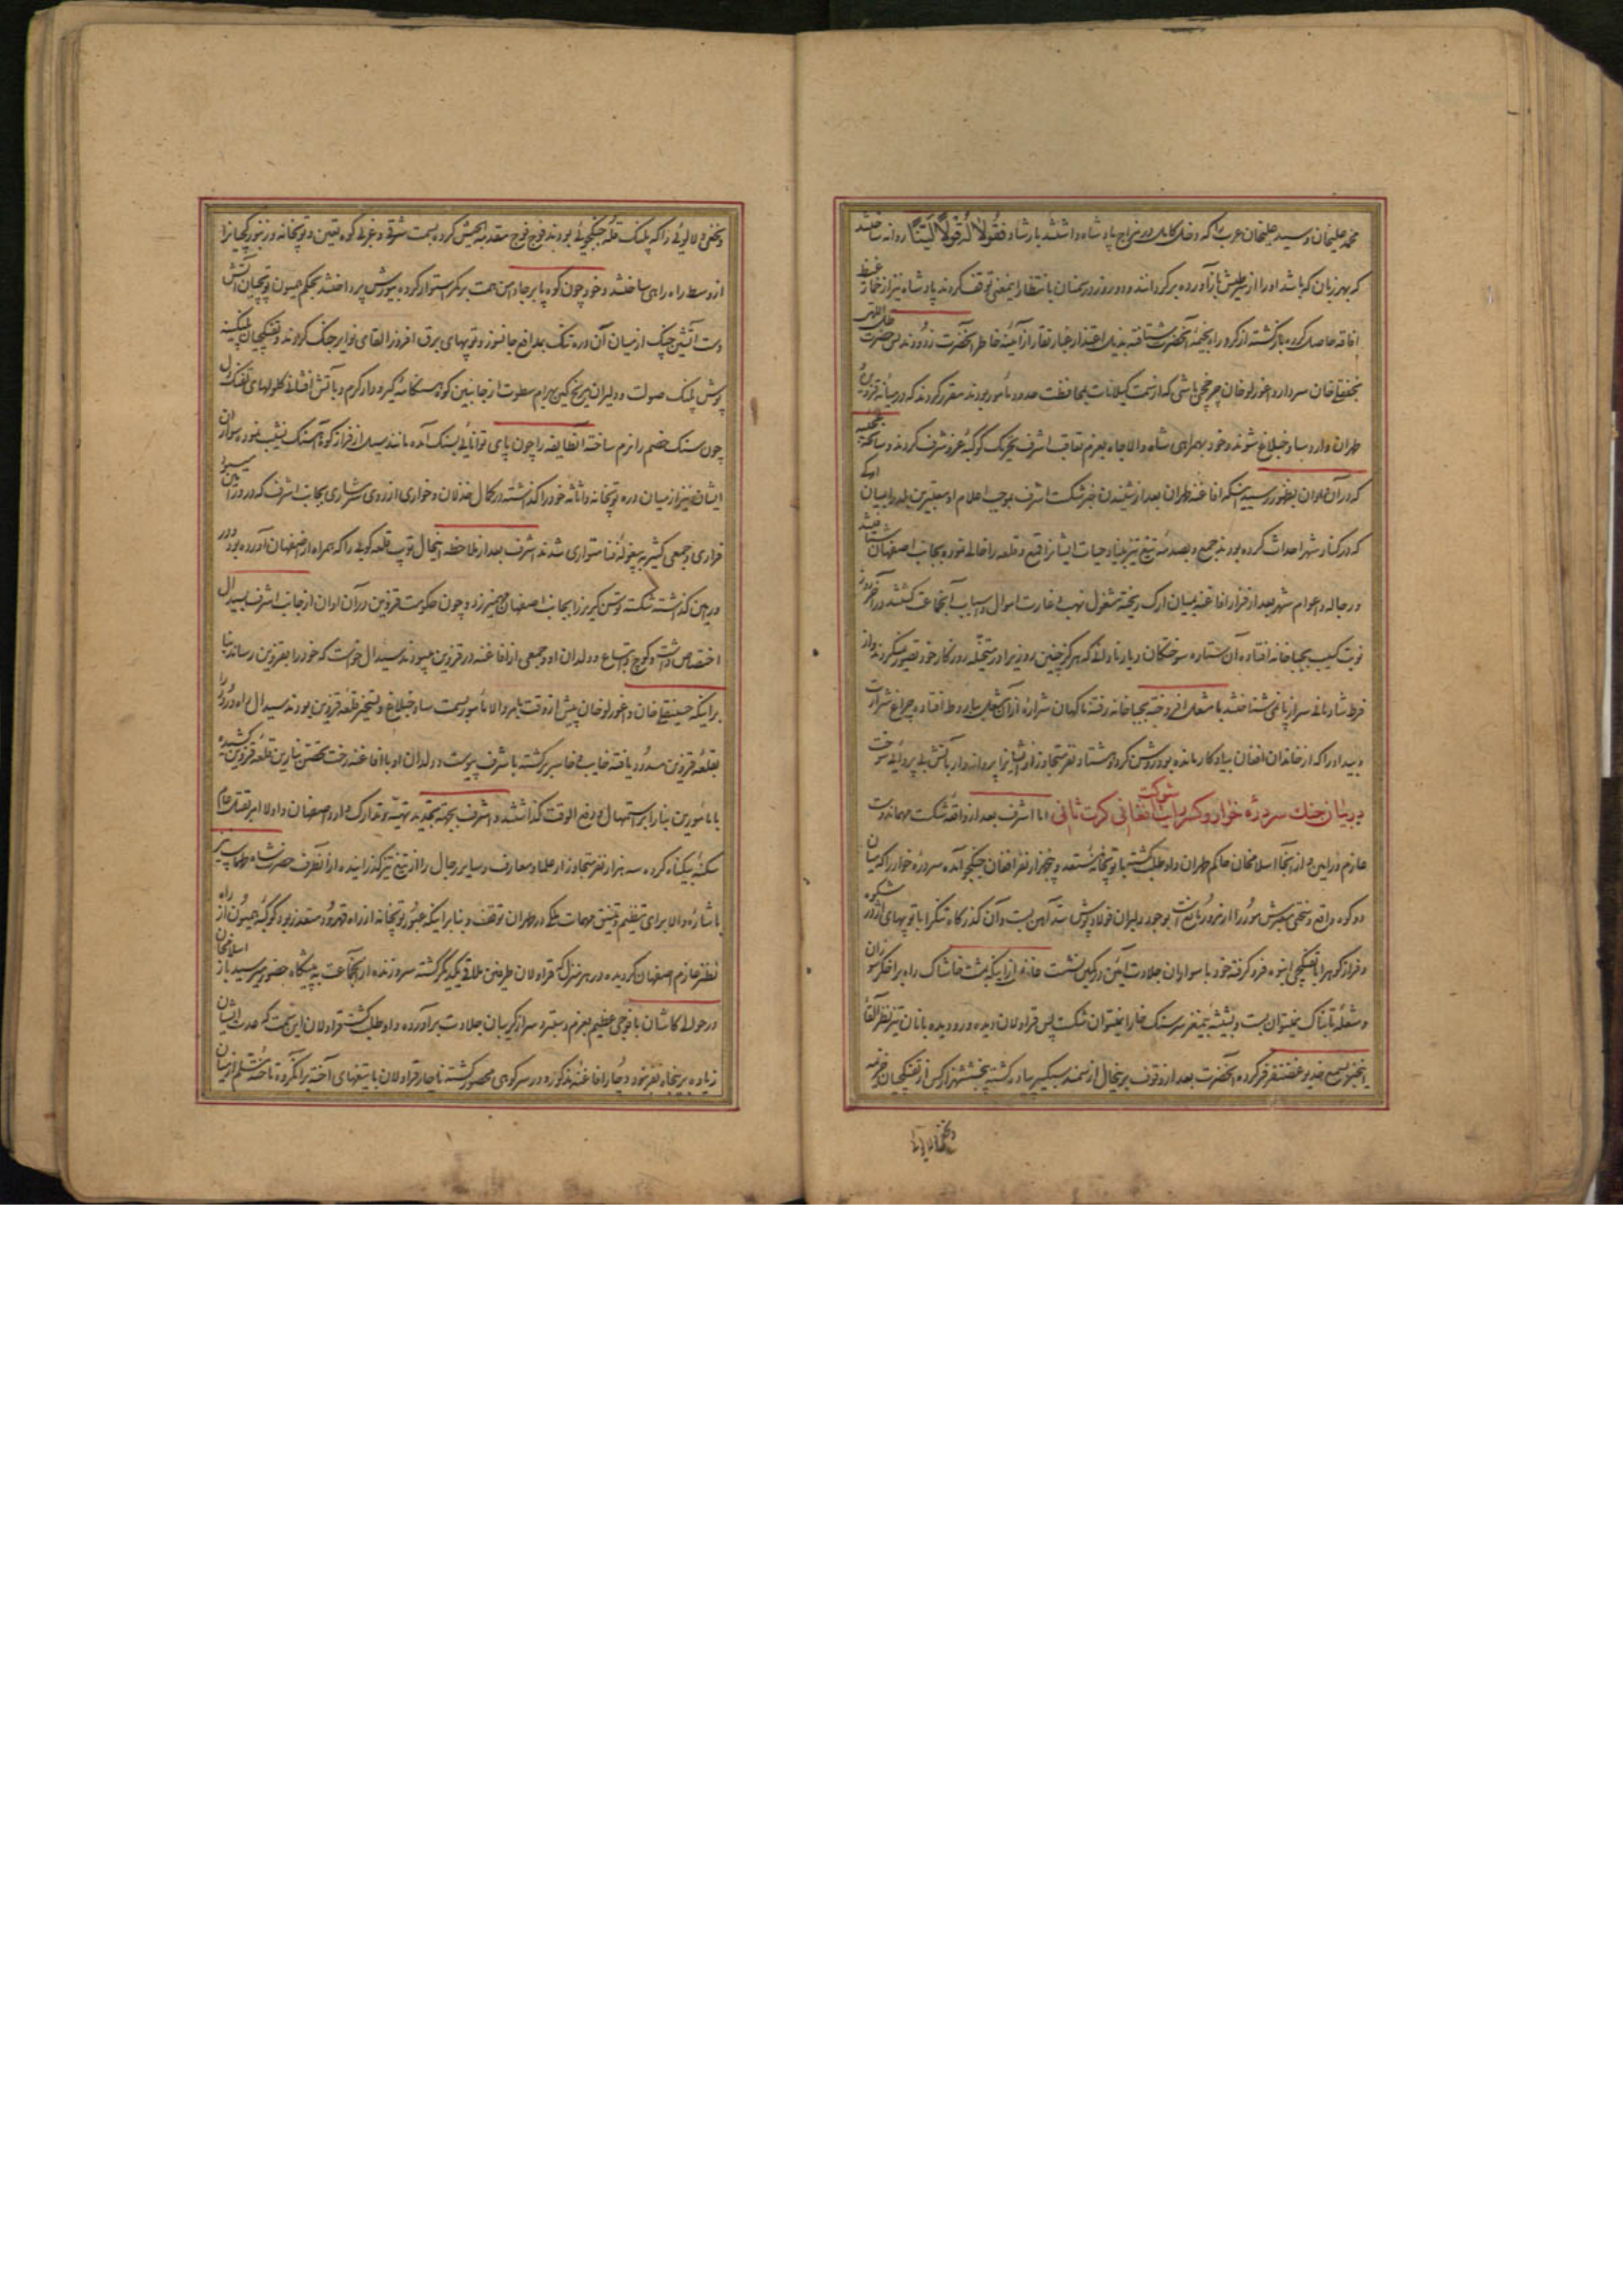 محمد علیخان و سید علیخان عرب را که دخل کامل در مزاج پادشاه داشتند بارشاد فقولا له قولا لینا روانه ساختند
که بهر زبان که باشد او را از سر طیش باز آورده برگردانند و دو روز در سمنان بانتظار اینمعنی توقف کردند پادشاه نیز از خمار غیظ
افاقه حاصل کرده بازگشته از گرد راه بخیمه آنحضرت شتافته بذیل اعتذار غبار نقار از آئینه خاطر آنحضرت زدودند پس حضرت ظل اللهی
نجفقلی خان سردار و اغورلو خان چرخچی باشی که از سمت گیلانات بمحافظت حدود مأمور بودند مقرر کردند که در میانه قزوین
طهران وارد ساوخبلاغ شوند و خود بهمراهی شاه والاجاه بعزم تعاقب اشرف تحریک کوکبه عز و شرف کردند و سانحه
که در آن اوان بظهور رسید اینکه افاغنه طهران بعد از شنیدن خبر شکست اشرف بموجب اعلام او معتبرین بلد را بمیان ارکی
که در کنار شهر احداث کرده بودند جمع و بصدمه تیغ تیز بنیاد حیات ایشانرا قلع و قلعه را خالی نموده بجانب اصفهان شتافتند
و رجاله و عوام شهر بعد از فرار افاغنه بمیان ارک ریخته مشغول نهب و غارت اموال و اسباب آنجماعت گشتند در آخر روز
نوبت کسیب بجباخانه افتاده آن ستاره سوختگان دیار نادانی که هرگز چنین روزیرا در متخیله روزگار خود تصور نمیکردند و از
فرط شادمانی سر از پا نمی شناختند با مشعل افروخته بجباخانه رفته ناگهان شراره از آن مشعل بباروط افتاده چراغ شرارت
و بیداد را که از خاندان افغان بیادگار مانده بود روشن کرد و هشتاد نفر متجاوز از ایشانرا پروانه وار بآتش بی پروائی سوخت
در بیان جنک سر دره خوار و کسر شوکت افغانی کرت ثانی اما اشرف بعد از واقعه شکست مهماندوست
عازم ورامین و از آنجا اسلامخان حاکم طهران داوطلب گشته با توپخانه مستعد و پنجهزار نفر افغان جنگجو آمده سردره خوار را که میان
دو کوه واقع و تنگی معبرش مور را از مرور مانع است بوجود دلیران فولاد پوش سد آهن بست و آن گذرگاه تنگ را با توپهای اژدر شکوه
و فراز کوه را با تفنگچی انبوه فرو گرفته خود با سواران جلادت آئین در کمین نشست غافل از اینکه بمشت خاشاک راه بر اخگر سوزان
و شعله تابناک نمیتوان بست و بشیشه بیمغز سر سنگ خارا نمیتوان شکست پس قراولان دیده ور و دیده بانان تیز نظر القاء
اینخبر بسمع خدیو غضنفر فر کرده آنحضرت بعد از وقوف بر اینحال از سمند سبکسیر پیاده گشته پنجششهزار کس از تفنگچیان خراسانی
و بخفی و لالوئی را
و بخفی و لالوئی را که پلنک قله جنگجوئی بودند فوج فوج مقدمة الجیش کرده بسمت شرقی و غربی کوه تعیین و توپخانه و زنبورکچیانرا
از وسط راه راهی ساختند و خود چون کوه پا بر جا دامن همت بر کمر استوار کرده بیورش پرداختند بحکم همیون توپچیان آتش
دست آتشین چنک از میان آن دره تنک بمدافع جانسوز و توپهای برق افروز القای نوایر جنک کردند و تفنگچیان پلنگینه
پوش پلنک صولت و دلیران مریخ کین بهرام سطوت از جانبین کوه هنگامه گیر و دار گرم و بآتش افشانی گلولهای تفنک دل
چون سنک خصم را نرم ساخته آنطایفه را چون پای توانائی بسنک آمده مانند سیل از فراز کوه آهنک نشیب نمود و سواران
ایشان نیز از میان دره توپخانه و اثاثه خود را گذاشته در کمال خذلان و خواری از روی سرشاری بجانب اشرف که در ورامین میبود
فراری و جمعی کثیر به بیغوله فنا متواری شدند اشرف بعد از ملاحظه اینحال توپ قلعه کوبی را که همراه از اصفهان آورده بود در
ورامین گذاشته شکسته توسن گریز را بجانب اصفهان مهمیز زد و چون حکومت قزوین در آن اوان از جانب اشرف بسیدال
اختصاص داشت و کوچ و اتباع و ولدان او و جمعی از افاغنه در قزوین میبودند سیدال خواست که خود را بقزوین رساند بنا
بر اینکه حسینقلی خان و اغورلو خان پیش از وقت بامر والا مأمور سمت ساوخبلاغ و تسخیر قلعه قزوین بودند سیدال راه ورود را
بقلعه قزوین مسدود یافته خایب و خاسر برگشته باشرف پیوست و ولدان او با افاغنه رخت تحصن بنارین قلعه قزوین کشیده
با مأمورین بنا را بر استمهال و دفع الوقت گذاشتند و اشرف بجهته تجدید تهیه و تدارک وارد اصفهان و اولا امر بقتل عام
سکنه بیگناه کرده سه هزار نفر متجاوز از علما و معارف و سایر رجال را از تیغ تیز گذرانیده از آنطرف حضرت شاه طهماسب
باشاره والا برای تنظیم و تنسیق مهمات ملکی در طهران توقف و بنا بر اینکه عبور توپخانه از راه قهرود متعذر بود کوکبه همیون از راه
نطنز عازم اصفهان گردیده در هر منزل که قراولان طرفین ملاقی یکدیگر گشته سر و زنده از آنجماعت به پیشگاه حضور میرسید باز اسلامخان
در حوالی کاشان با فوجی عظیم بعزم دستبرد سر از گریبان جلادت برآورده داوطلب گشته قراولان این سمت که عدت ایشان
زیاده بر پنجاه نفر نبود دچار افاغنه مذکور و در سر کوهی محصور گشته ناچار قراولان با تیغهای آخته بر آنگروه تاخته سالم از میان